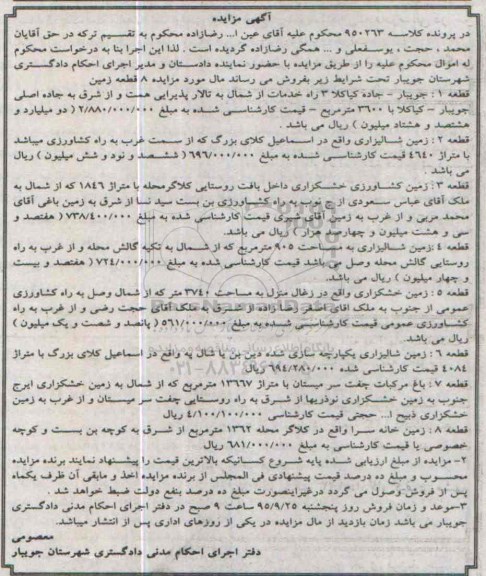 آگهی مزایده
در پرونده کلاسه ۹۵۰۲۶۳ محکوم علیه آقای عین ا... رضازاده محکوم به تقسیم ترکه در حق آقایان
محمد ، حجت ، یوسفعلی و ... همگی رضازاده گردیده است . لذا این اجرا بنا به درخواست محکوم
له اموال محکوم علیه را از طریق مزایده با حضور نماینده دادستان و مدیر اجرای احکام دادگستری
شهرستان جویبار تحت شرایط زیر بفروش می رساند مال مورد مزایده ۸ قطعه زمین
قطعه ۱ : جویبار - جاده کیاکلا ۳ راه خدمات از شمال به تالار پذیرایی همت و از شرق به جاده اصلی
جویبار - کیاکلا با ۳۶۰۰ مترمربع - قیمت کارشناسی شده به مبلغ ۲/۸۸۰/۰۰۰/۰۰۰ ( دو میلیارد و
هشتصد و هشتاد میلیون ) ریال می باشد .
قطعه ۲ : زمین شالیزاری واقع در اسماعیل کلای بزرگ که از سمت غرب به راه کشاورزی میباشد
با متراژ ۴۶۴۰ قیمت کارشناسی شده به مبلغ ۶۹۶/۰۰۰/۰۰۰ ( ششصد و نود و شش میلیون ) ریال
می باشد .
قطعه ۳ : زمین کشاورزی خشکزاری داخل بافت روستایی کلاگرمحله با متراژ ۱۸۴۶ که از شمال به
ملک آقای عباس سعودی از جنوب به راه کشاورزی بن بست سید نسا از شرق به زمین باغی آقای
محمد مربی و از غرب به زمین آقای شیری قیمت کارشناسی شده به مبلغ ۷۳۸/۴۰۰/۰۰۰ ( هفتصد و
سی و هشت میلیون و چهارصد هزار ) ریال می باشد.
قطعه ۴ :زمین شالیزاری به مساحت ۹۰۵ مترمربع که از شمال به تکیه گالش محله و از غرب به راه
روستایی گالش محله وصل می باشد قیمت کارشناسی شده به مبلغ ۷۲۴/۰۰۰/۰۰۰ ( هفتصد و بیست
و چهار میلیون ) ریال می باشد.
قطعه ۵ : زمین خشکزاری واقع در زغال منزل به مساحت ۳۷۴۰ متر که از شمال وصل به راه کشاورزی
عمومی از جنوب به ملک آقای اصغر رضا زاده از شرق به ملک آقای حجت رضی و از غرب به راه
کشاورزی عمومی قیمت کارشناسی شده به مبلغ ۵۶۱/۰۰۰/۰۰۰ ( پانصد و شصت و یک میلیون )
ریال می باشد
قطعه ۶ : زمین شالیزاری یکپارچه سازی شده دین بن یا شال په واقع در اسماعیل کلای بزرگ با متراژ
۴۰۸۴ قیمت کارشناسی شده ۶۹۴/۲۸۰/۰۰۰ ریال
قطعه ۷ : باغ مرکبات چفت سر میستان با متراژ ۱۳۶۶۷ مترمربع که از شمال به زمین خشکزاری ایرج
جنوب به زمین خشکزاری نوذریها از شرق به راه روستایی چفت سر میستان و از غرب به زمین
خشکزاری ذبیح ا... حجتی قیمت کارشناسی ۴/۱۰۰/۱۰۰/۰۰۰ ریال
قطعه ۸ : زمین خانه سرا واقع در کلاگر محله ۱۳۶۲ مترمربع از شرق به کوچه بن بست و کوچه
خصوصی با قیمت کارشناسی به مبلغ ۶۸۱/۰۰۰/۰۰۰ ریال
۲- مزایده از مبلغ ارزیابی شده پایه شروع کسانیکه بالاترین قیمت را پیشنهاد نمایند برنده مزایده
محسوب و مبلغ ده درصد قیمت پیشنهادی فی المجلس از برنده مزایده اخذ و مابقی آن ظرف یکماه
پس از فروش وصول می گردد درغیراینصورت مبلغ ده درصد بنفع دولت ضبط خواهد شد .
۳-موعد و زمان فروش روز پنجشنبه ۹۵/۹/۲۵ ساعت ۹ صبح در دفتر اجرای احکام مدنی دادگستری
جویبار می باشد زمان بازدید از مال مزایده در یکی از روزهای اداری پس از انتشار میباشد.
معصومی
دفتر اجرای احکام مدنی دادگستری شهرستان جویبار